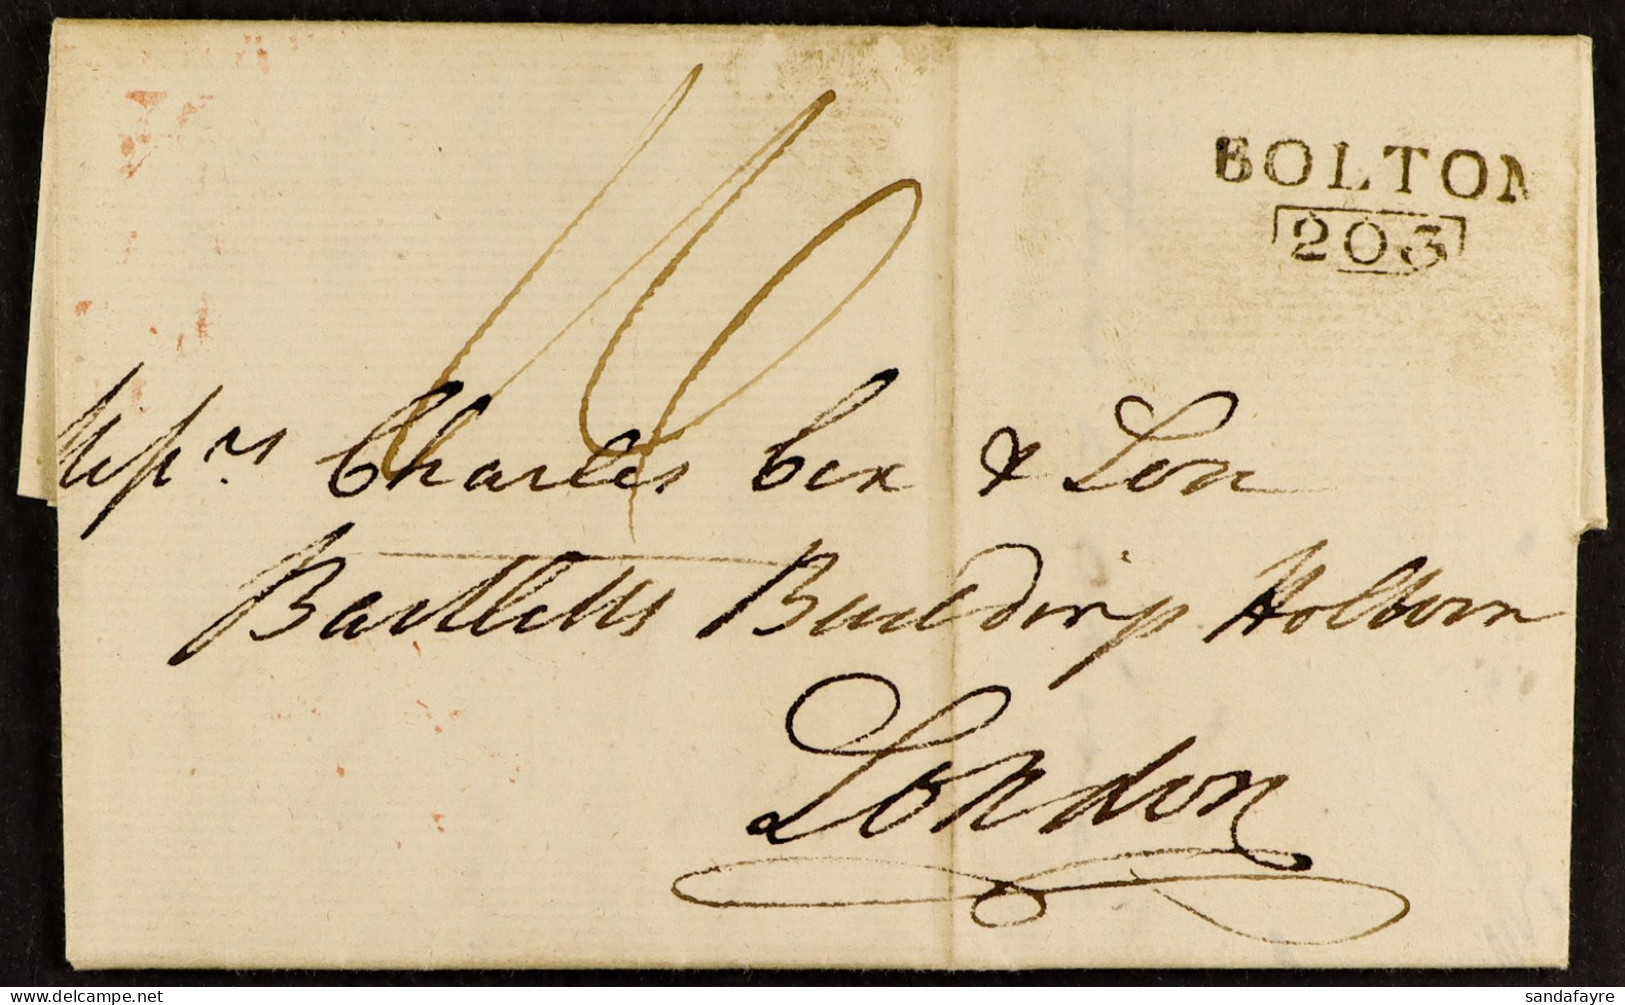 BOLTON
203
Messrs Charles Cox & Son
Bartletts Buildings Holborn
London
sandafayre